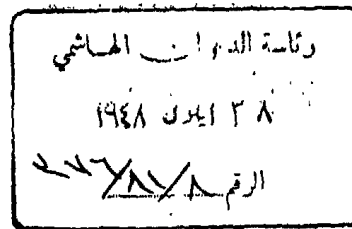 رئاسة الديوان الهاشمي
٣ ايلول ١٩٤٨
الرقم ٨/٨٧/